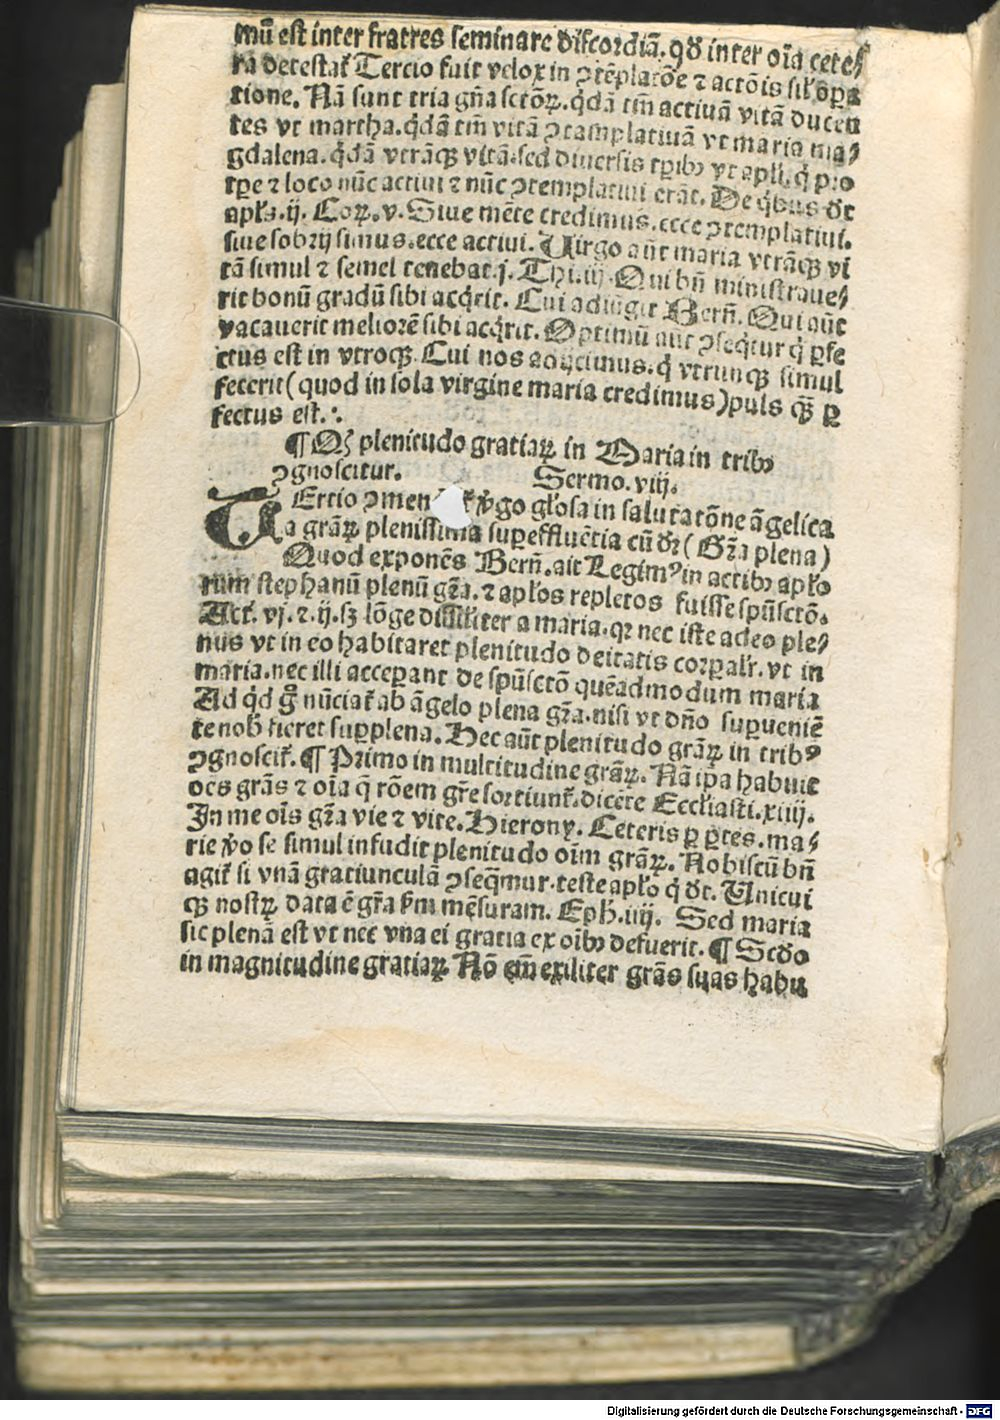 mū est inter fratres seminare discordiā. qd̄ inter oīa cete⸗
ra detestat᷑ Tercio fuit velox in ꝯtēplatōe ⁊ actōis sil̕ oꝑa
tione. Nā sunt tria gn̄a sctōꝝ. q̇dā tm̄ actiuā vitā ducen
tes vt martha. q̇dā tm̄ vitā ꝯtamplatiuā vt maria ma⸗
gdalena. q̇dā vtrāqꝫ vitā. sed diuersis tꝑibꝰ vt apl̕i. q̇ pro
tꝑe ⁊ loco nūc actiui ⁊ nūc ꝯtemplatiui erāt. De q̇bus dt̄
apl̕s. ij. Coꝝ. v. Siue mēte credimus. ecce ꝯtemplatiui.
siue sobrij simus. ecce actiui. Uirgo aūt maria vtrāqꝫ vi
tā simul ⁊ semel tenebat. j. Thi. iij. Qui bn̄ ministraue⸗
rit bonū gradū sibi acq̇rit. Cui adiūgit Bern̄. Qui aūt
vacauerit meliorē sibi acq̇rit. Optimū aūt ꝯseq̇tur q̇ ꝑfe
ctus est in vtroqꝫ. Cui nos adijcimus. q̇ vtrunqꝫ simul
fecerit (quod in sola virgine maria credimus) pl̕us qꝫ̄ ꝑ
fectus est.
¶ Qꝫ plenitudo gratiaꝝ in Maria in tribꝰ
ꝯgnoscitur. Sermo. viij.
TErcio ꝯmen v̇go gl̕osa in salutatōne āgelica
a grāꝝ plenissima suꝑeffluētia cū dr̄ (Gr̄a plena)
Quod exponēs Bern̄. ait Legimꝰ in actibꝰ apl̕o
rum stephanū plenū gr̄a. ⁊ apl̕os repletos fuisse spūsctō.
Act̕. vj. ⁊. ij. sꝫ lōge dissil̕iter a maria. qꝛ nec iste adeo ple⸗
nus vt in eo habitaret plenitudo deitatis corꝑal̕r. vt in
maria. nec illi acceꝑant de spūsctō quēadmodum maria
Ad q̇d g̊ nūciat᷑ ab āgelo plena gr̄a. nisi vt dn̄o suꝑueniē
te nob̕ fieret suꝑplena. Hec aūt plenitudo grāꝝ in tribꝰ
ꝯgnoscit᷑. ¶ Primo in multitudine grāꝝ. Nā ip̄a habuit
oēs grās ⁊ oīa q̄ rōem gr̄e sortiunt᷑. dicēte Eccl̕iasti. xiiij.
In me oīs gr̄a vie ⁊ vite. Hierony. Ceteris ꝑ ꝑtes. ma⸗
rie v̇o se simul infudit plenitudo oīm grāꝝ. Nobiscū bn̄
agit᷑ si vnā gratiunculā ꝯseq̄mur. teste apl̕o q̇ dt̄. Unicui
qꝫ nostꝝ data ē gr̄a ẜm mēsuram. Eph̕. iiij. Sed maria
sic plena est vt nec vna ei gratia ex oībꝰ defuerit. ¶ Scd̄o
in magnitudine gratiaꝝ. Nō em̄ exiliter grās suas habu
Digitalisierung gefördert durch die Deutsche Forschungsgemeinschaft - DFG